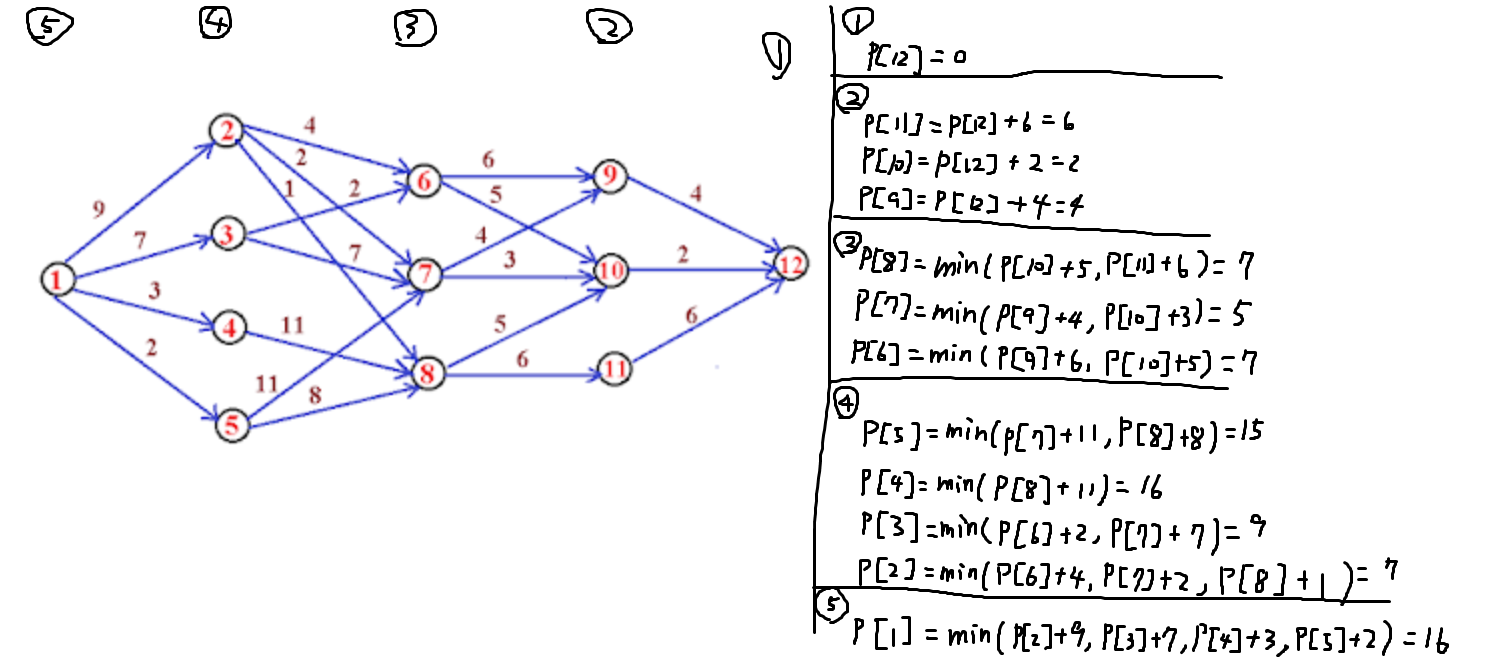 ⑤ ④ ③ ② ①
4
2
9
1
2
6
5
4
7
7
4
3
2
3
11
5
6
2
11
8
6
1
2
3
4
5
6
7
8
9
10
11
12
①
P[12] = 0
②
P[11] = P[12] + 6 = 6
P[10] = P[12] + 2 = 2
P[9] = P[12] + 4 = 4
③
P[8] = min(P[10] + 5, P[11] + 6) = 7
P[7] = min(P[9] + 4, P[10] + 3) = 5
P[6] = min(P[9] + 6, P[10] + 5) = 7
④
P[5] = min(P[7] + 11, P[8] + 8) = 15
P[4] = min(P[8] + 11) = 16
P[3] = min(P[6] + 2, P[7] + 7) = 9
P[2] = min(P[6] + 4, P[7] + 2, P[8] + 1) = 7
⑤
P[1] = min(P[2] + 9, P[3] + 7, P[4] + 3, P[5] + 2) = 16